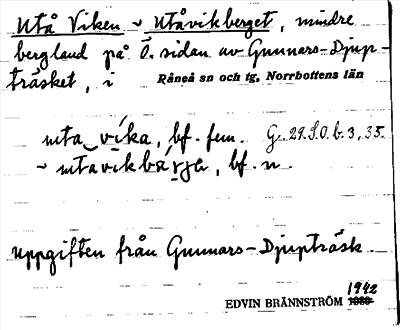 Utå Viken ~ Utåvikberget, mindre
bergland på Ö. sidan av Gunnars-Djup-
träsket, i Råneå sn och tg, Norrbottens län
uta vika, bf. fem. G. 29. S.O. b. 3, 35.
~ utavikbärje, bf. n.
Uppgiften från Gunnars-Djupträsk.
1942
EDVIN BRÄNNSTRÖM